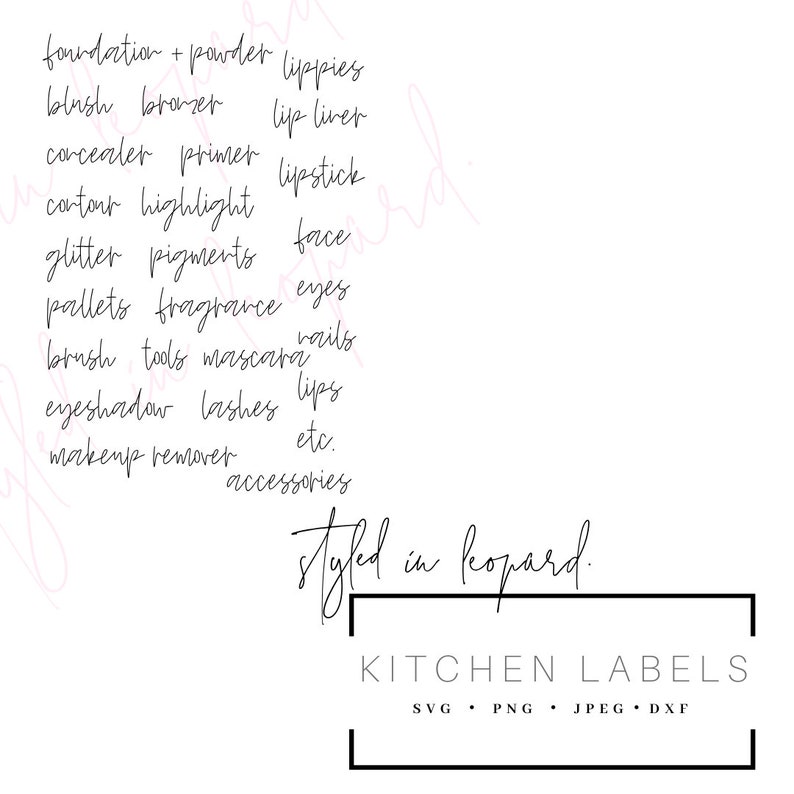 foundation + powder
lippies
blush bronzer
lip liner
concealer primer
lipstick
contour highlight
face
glitter pigments
eyes
pallets fragrance
nails
brush tools mascara
lips
eyeshadow lashes
etc.
makeup remover
accessories
styled in leopard.
KITCHEN LABELS
SVG • PNG • JPEG • DXF
styled in leopard.
in leopard